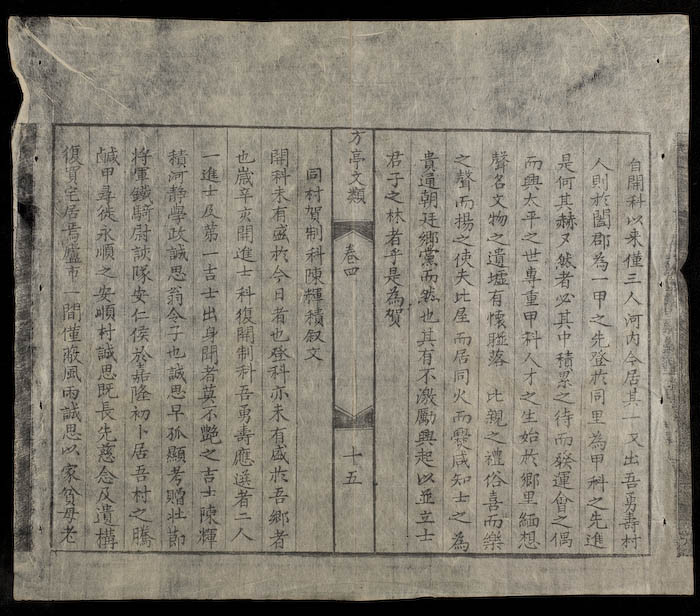 自開科以来僅三人河内今居其一又出吾勇壽村
人則於闔郡為一甲之先登於同里為甲科之先進
是何其赫又然者必其中積累之待而發運會之偶
而興太平之世專重甲科人才之生始於鄉里緬想
聲名文物之遺墟有懷聯落 比親之禮俗喜而樂
之聲而揚之使夫比屋而居同火而爨咸知士之為
貴逼朝廷鄉黨而然也其有不激勵興起以並立士
君子之林者乎是為賀
方亭文類 卷四 十五
同村賀制科陳輝積叙文
開科未有盛於今日者也登科亦未有盛於吾鄉者
也歲辛亥開進士科復開制科吾勇壽應選者二人
一進士及第一吉士出身聞者莫不艷之吉士陳輝
積河静學政誠思翁令子也誠思早孤顯考贈壯節
將軍鐵騎尉該隊安仁侯於嘉隆初卜居吾村之騰
鹹甲尋徙永順之安順村誠思既長先慈念及遺構
復買宅居焉廬市一間僅蔽風雨誠思以家貧母老